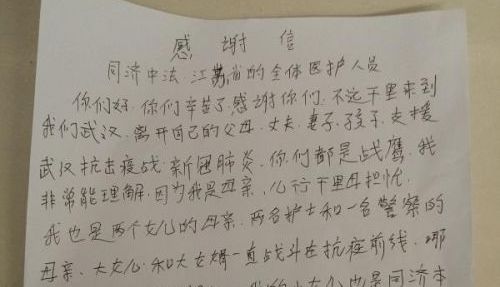 感谢信
同济中法.江苏省的全体医护人员
你们好.你们辛苦了.感谢你们.不远千里来到
我们武汉.离开自己的父母.丈夫.妻子.孩子.支援
武汉抗击疫战.新冠肺炎.你们都是战鹰.我
非常能理解.因为我是母亲.儿行千里母担忧.
我也是两个女儿的母亲.两名护士和一名警察的
母亲.大女儿和大女婿一直战斗在抗疫前线.哪
我的小女儿也是同济本